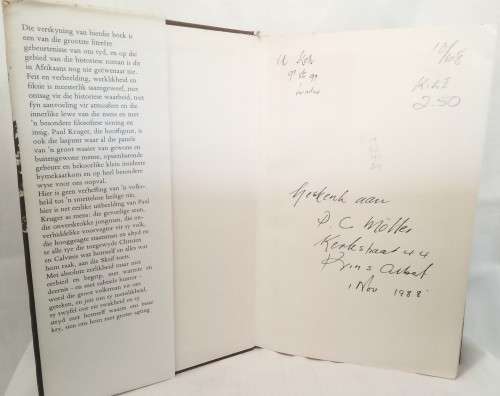 Die verskyning van hierdie boek is
een van die grootste literêre
gebeurtenisse van ons tyd, en op die
gebied van die historiese roman is die
in Afrikaans nog nie geëwenaar nie.
Feit en verbeelding, werklikheid en
fiksie is meesterlik saamgeweef, met
ontsag vir die historiese waarheid, met
fyn aanvoeling vir atmosfeer en die
innerlike lewe van die mens en met
'n besondere filosofiese siening en
insig. Paul Kruger, die hooffiguur, is
ook die laspunt waar al die panele
van 'n groot waaier van gewone en
buitengewone mense, opsienbarende
gebeure en bekoorlike klein insidente
bymekaarkom en op heel besondere
wyse voor ons oopval.
Hier is geen verheffing van 'n volks-
held tot 'n smettelose heilige nie,
hier is net eerlike uitbeelding van Paul
Kruger as mens: die gevoelige seun,
die onverskrokke jongman, die on-
verbiddelike voorvegter vir sy volk,
die hooggeagte staatsman en altyd en
te alle tye die toegewyde Christen
en Calvinis wat homself en alles wat
hom raak, aan die Skrif toets.
Met absolute eerlikheid maar met
eerbied en begrip, met warmte en
deernis - en met subtiele humor -
word die groot volksman vir ons
geteken, en juis om sy menslikheid,
sy twyfel oor eie swakheid en sy
stryd met homself waarin ons
sien ons hom met groter agting
R121
2.50
Geskenk aan
P C Möller
Kerkstraat 44
Prins Albert
1 Nov 1988